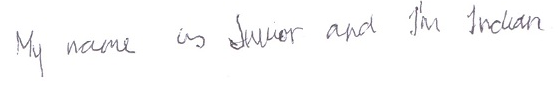 My name is Junior and I'm Indian